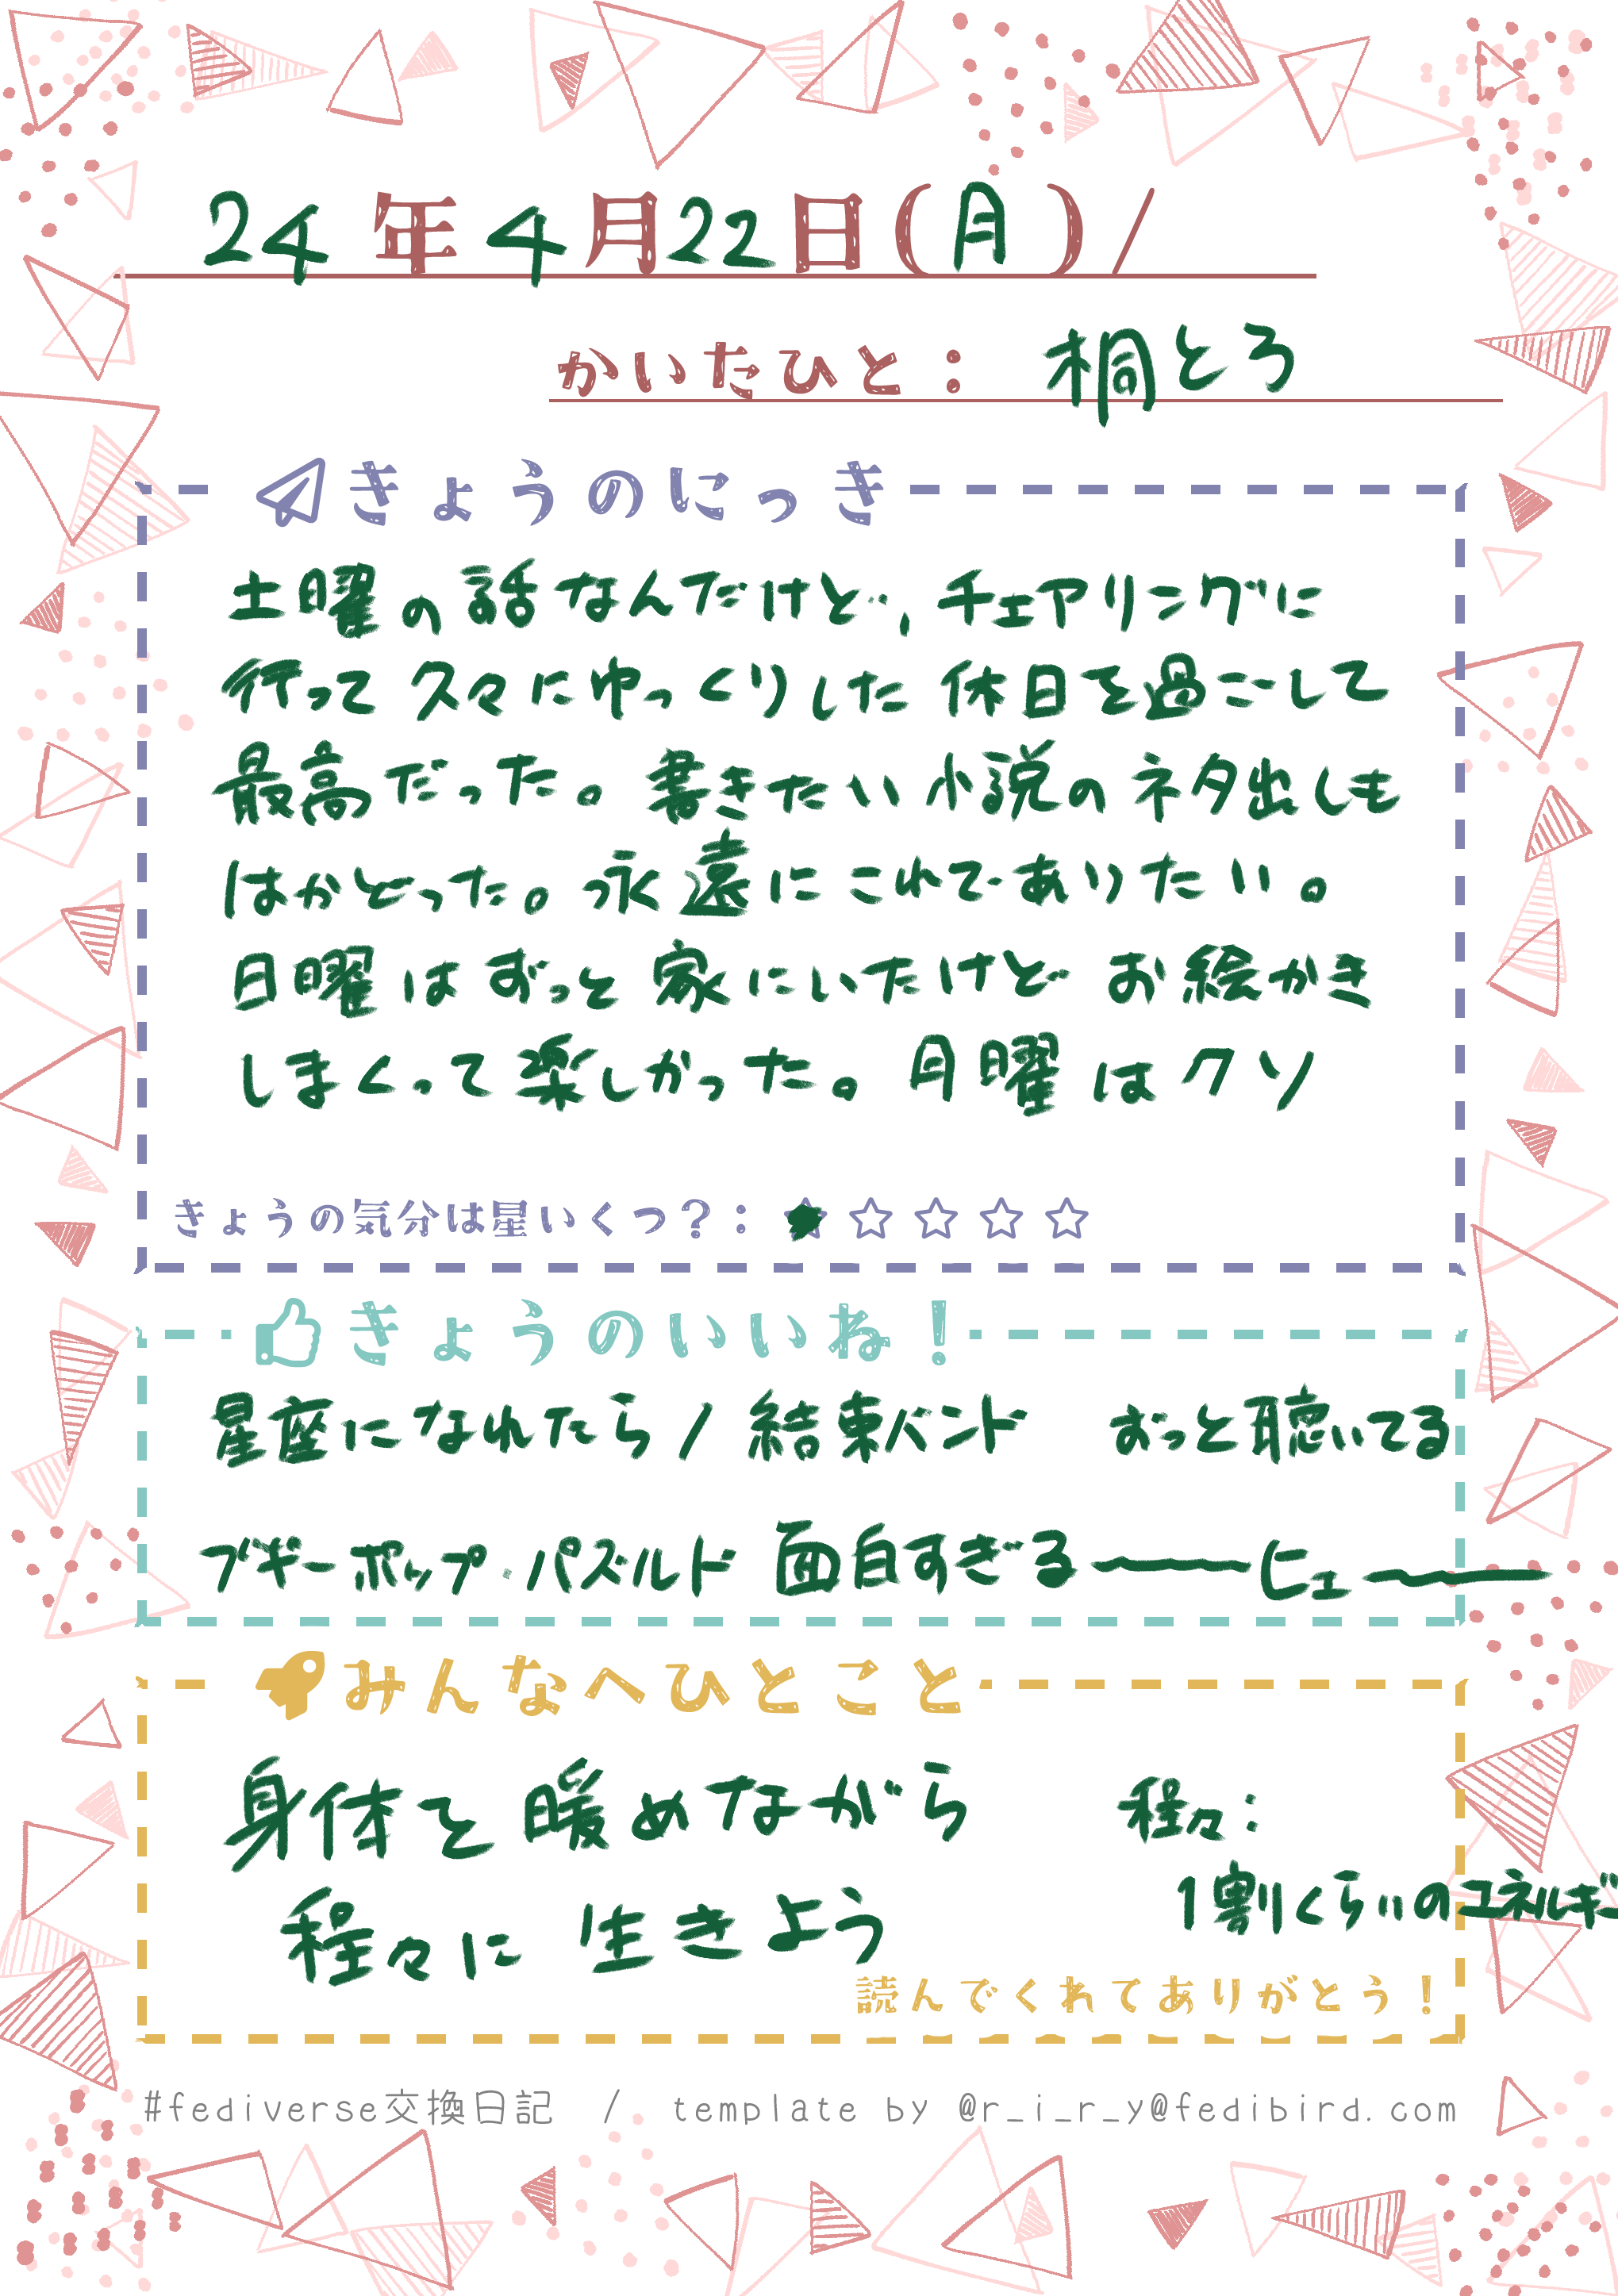 24年4月22日(月)/
かいたひと： 桐とろ
きょうのにっき
土曜の話なんだけど、チェアリングに
行って久々にゆっくりした休日を過ごして
最高だった。書きたい小説のネタ出しも
はかどった。永遠にこれでありたい。
日曜はずっと家にいたけどお絵かき
しまくって楽しかった。月曜はクソ
きょうの気分は星いくつ？： ★☆☆☆☆
きょうのいいね！
星座になれたら/結束バンド ずっと聴いてる
ブギーポップ・パズルド 面白すぎる〜〜ヒュ〜〜
みんなへひとこと
身体を暖めながら
程々に生きよう
程々：
1割くらいのエネルギー
読んでくれてありがとう！
#fediverse交換日記 / template by @r_i_r_y@fedibird.com